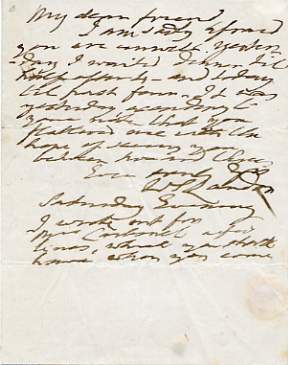 My dear friend
I am sadly afraid
you are unwell. Yester-
day I waited dinner till
half after 4 - and today
till first from. It was
yesterday according to
your note that you
flattered me with the
hope of seeing you
between two and three
Ever yours
W S Landor
Saturday Evening
I wrote out for
Mrs a few
lines, which you shall
have when you come